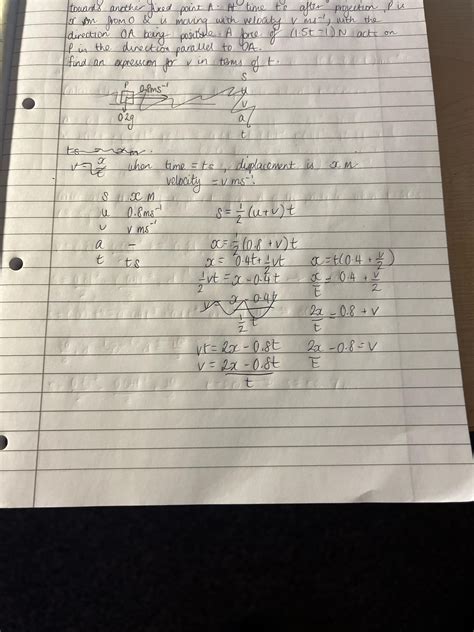 towards another fixed point A. At time t s after projection, P is
x m from O & is moving with velocity v ms⁻¹, with the
direction OA being positive. A force of (1.5t - 1)N acts on
P in the direction parallel to OA.
find an expression for v in terms of t.
P 0.8ms⁻¹ s
u
0.2g v
a
t
v = x/t when time = t s, displacement is x m
velocity = v ms⁻¹.
s x m
u 0.8ms⁻¹ s = 1/2 (u+v)t
v v ms⁻¹
a - x = 1/2 (0.8 + v)t
t t s x = 0.4t + 1/2 vt x = t(0.4 + v/2)
1/2 vt = x - 0.4t x/t = 0.4 + v/2
2x/t = 0.8 + v
vt = 2x - 0.8t 2x/t - 0.8 = v
v = 2x - 0.8t / t